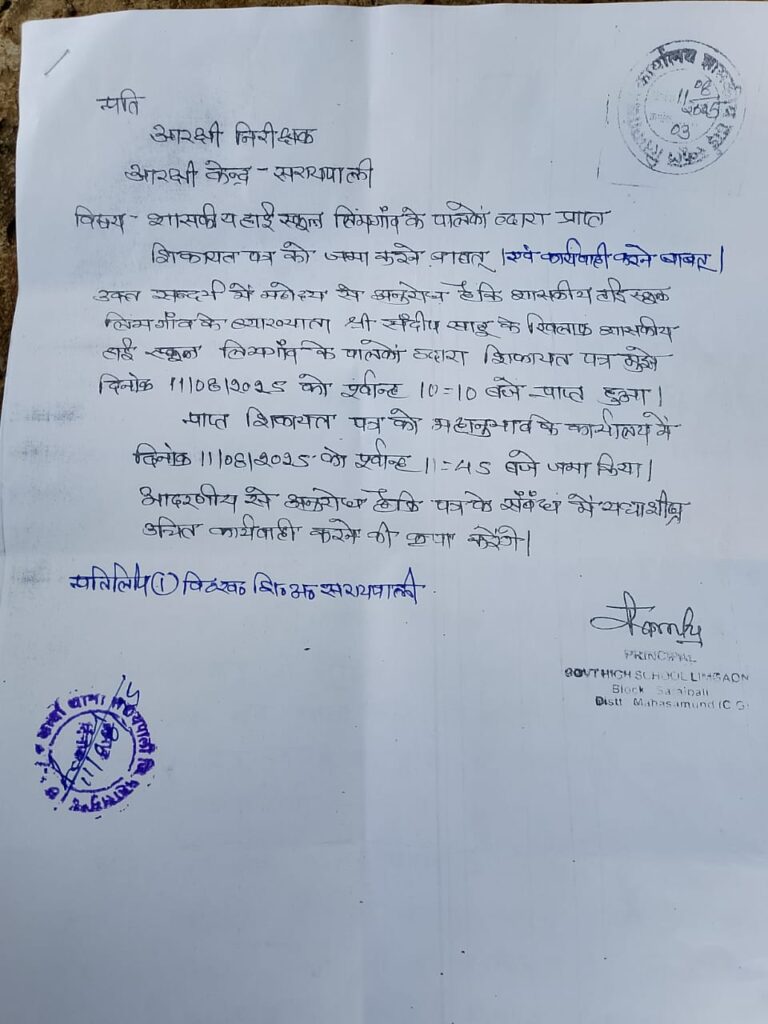 प्रति
आरक्षी निरीक्षक
आरक्षी केन्द्र - सरायपाली
विषय - शासकीय हाई स्कूल लिमगाँव के पालकों द्वारा प्राप्त
शिकायत पत्र को जमा करने बाबत् । एवं कार्यवाही करने बाबत् ।
उक्त सन्दर्भ में महोदय से अनुरोध है कि शासकीय हाई स्कूल
लिमगाँव के व्याख्याता श्री संदीप साहू के खिलाफ शासकीय
हाई स्कूल लिमगाँव के पालकों द्वारा शिकायत पत्र मुझे
दिनांक 11/08/2025 को पूर्वान्ह 10=10 बजे प्राप्त हुआ ।
प्राप्त शिकायत पत्र को महानुभाव के कार्यालय में
दिनांक 11/08/2025 को पूर्वान्ह 11=45 बजे जमा किया ।
आदरणीय से अनुरोध है कि पत्र के संबंध में यथाशीघ्र
उचित कार्यवाही करने की कृपा करेंगे ।
प्रतिलिपि ① वि०ख० शि०अ० सरायपाली
PRINCIPAL
GOVT HIGH SCHOOL LIMGAON
Block Saraipali
Distt Mahasamund (C.G.